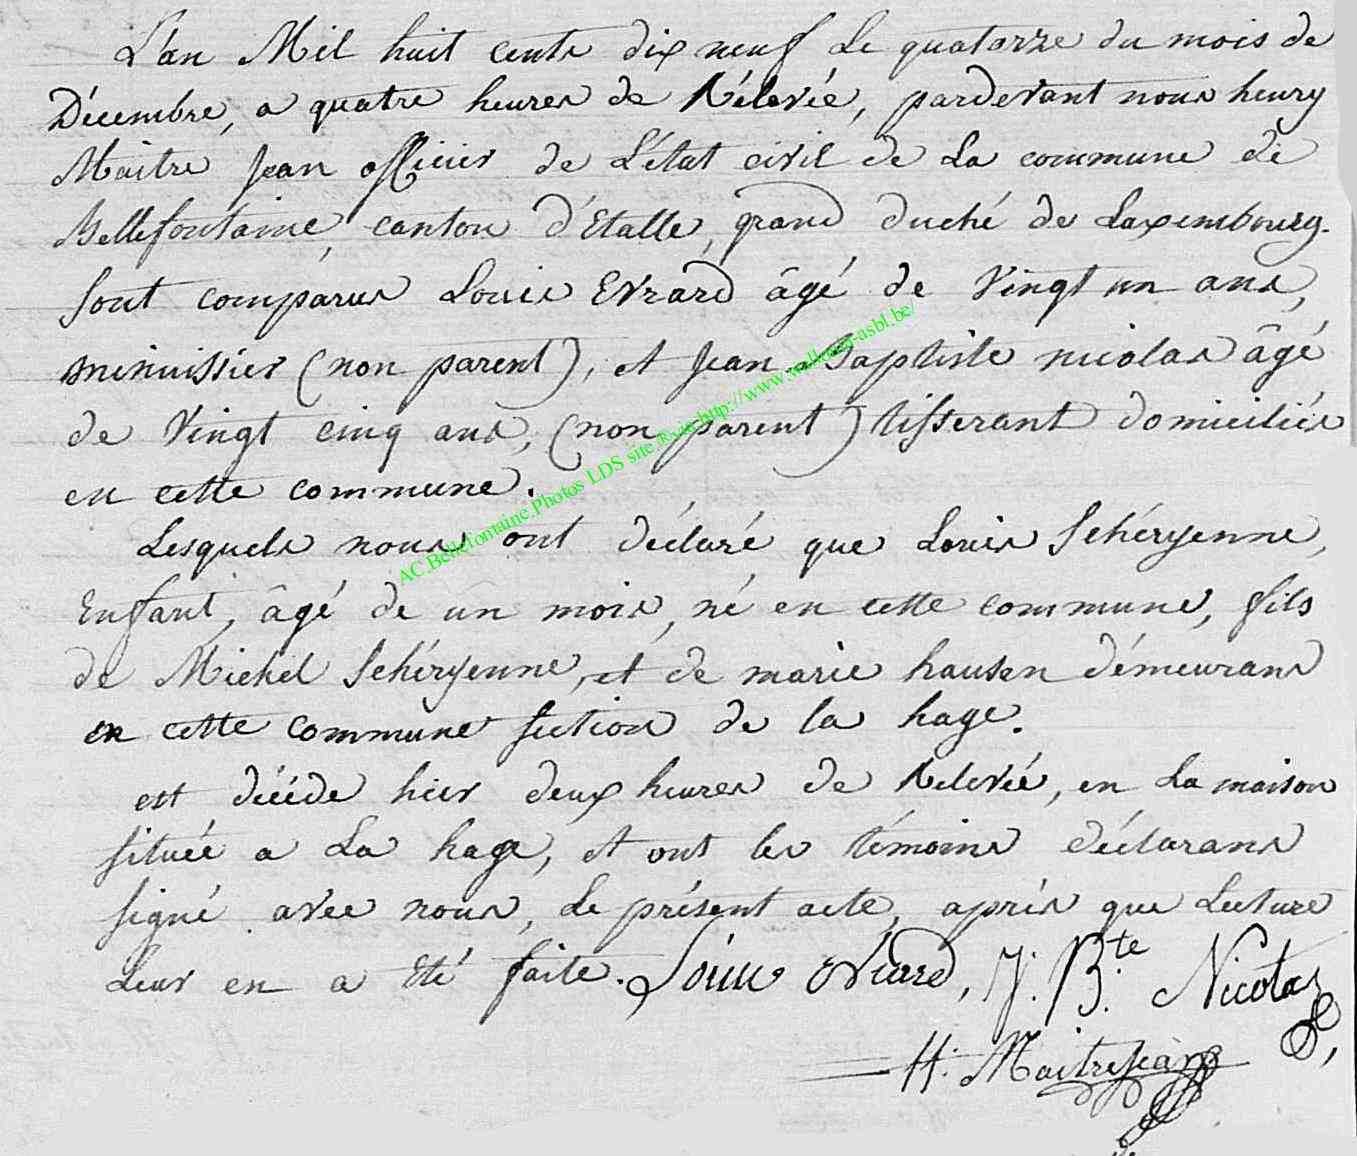 L'an Mil huit cents dix neuf Le quatorze du mois de
Décembre, a quatre heures de Rélevée, pardevant nous henry
Maitre Jean officier de L'état civil de La commune de
Bellefontaine, canton d'Etalle, grand duché de Luxembourg.
Sont comparus Louis Evrard âgé de Vingt un ans,
minuissier (non parent), et Jean-Baptiste nicolas âgé
de Vingt cinq ans, (non parent) tisserant domiciliés
en cette commune.
Lesquels nous ont déclaré que Louis Schéryenne,
Enfant, âgé de un mois, né en cette commune, fils
de Michel Schéryenne, et de marie hausen démeurans
en cette commune section de la hage.
est décédé hier deux heures de Relevée, en La maison
située a La hage, et ont les témoins déclarans
signé avec nous, Le présent acte, après que Lecture
Leur en a été faite. Louis Evrard, J. B.te Nicolas
H. MaitreJean
AC.Bellefontaine.Photos LDS site http://www.wallonia-asbl.be/